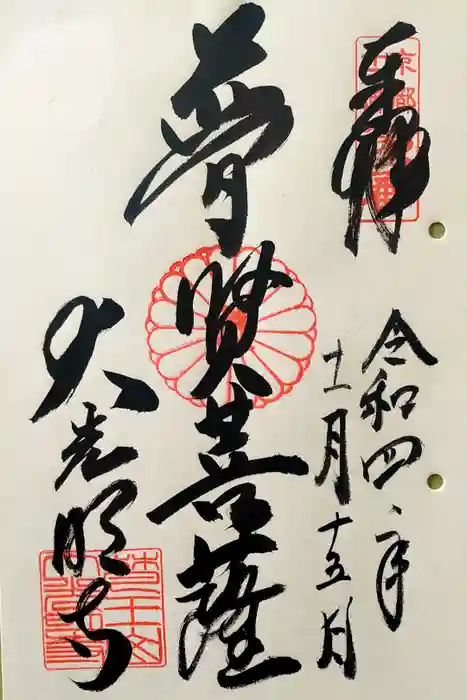 奉拝
令和四年
十一月十五日
普賢菩薩
大光明寺
京都